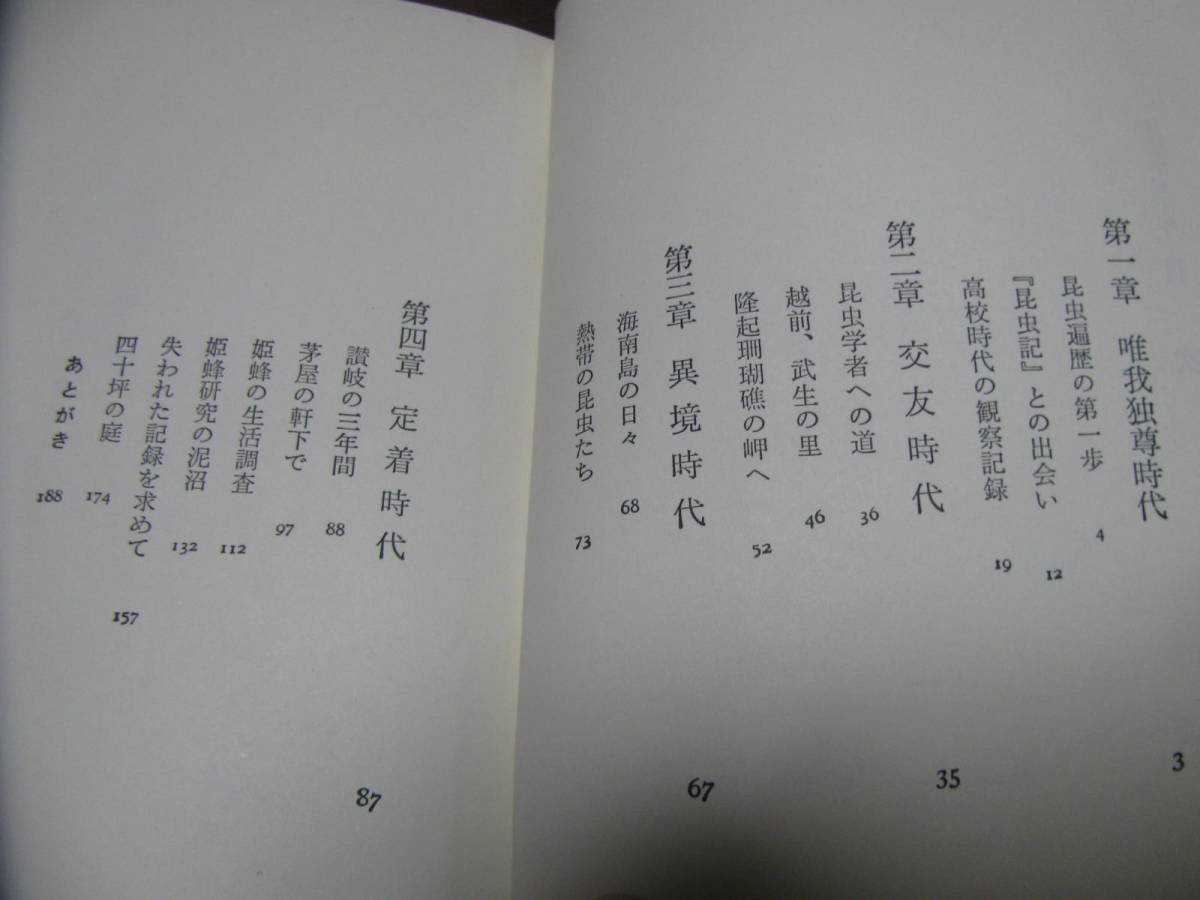 第一章 唯我独尊時代 3
昆虫遍歴の第一歩 4
『昆虫記』との出会い 12
高校時代の観察記録 19
第二章 交友時代 35
昆虫学者への道 36
越前、武生の里 46
隆起珊瑚礁の岬へ 52
第三章 異境時代 67
海南島の日々 68
熱帯の昆虫たち 73
第四章 定着時代 87
讃岐の三年間 88
茅屋の軒下で 97
姫蜂の生活調査 112
姫蜂研究の泥沼 132
失われた記録を求めて 157
四十坪の庭 174
あとがき 188